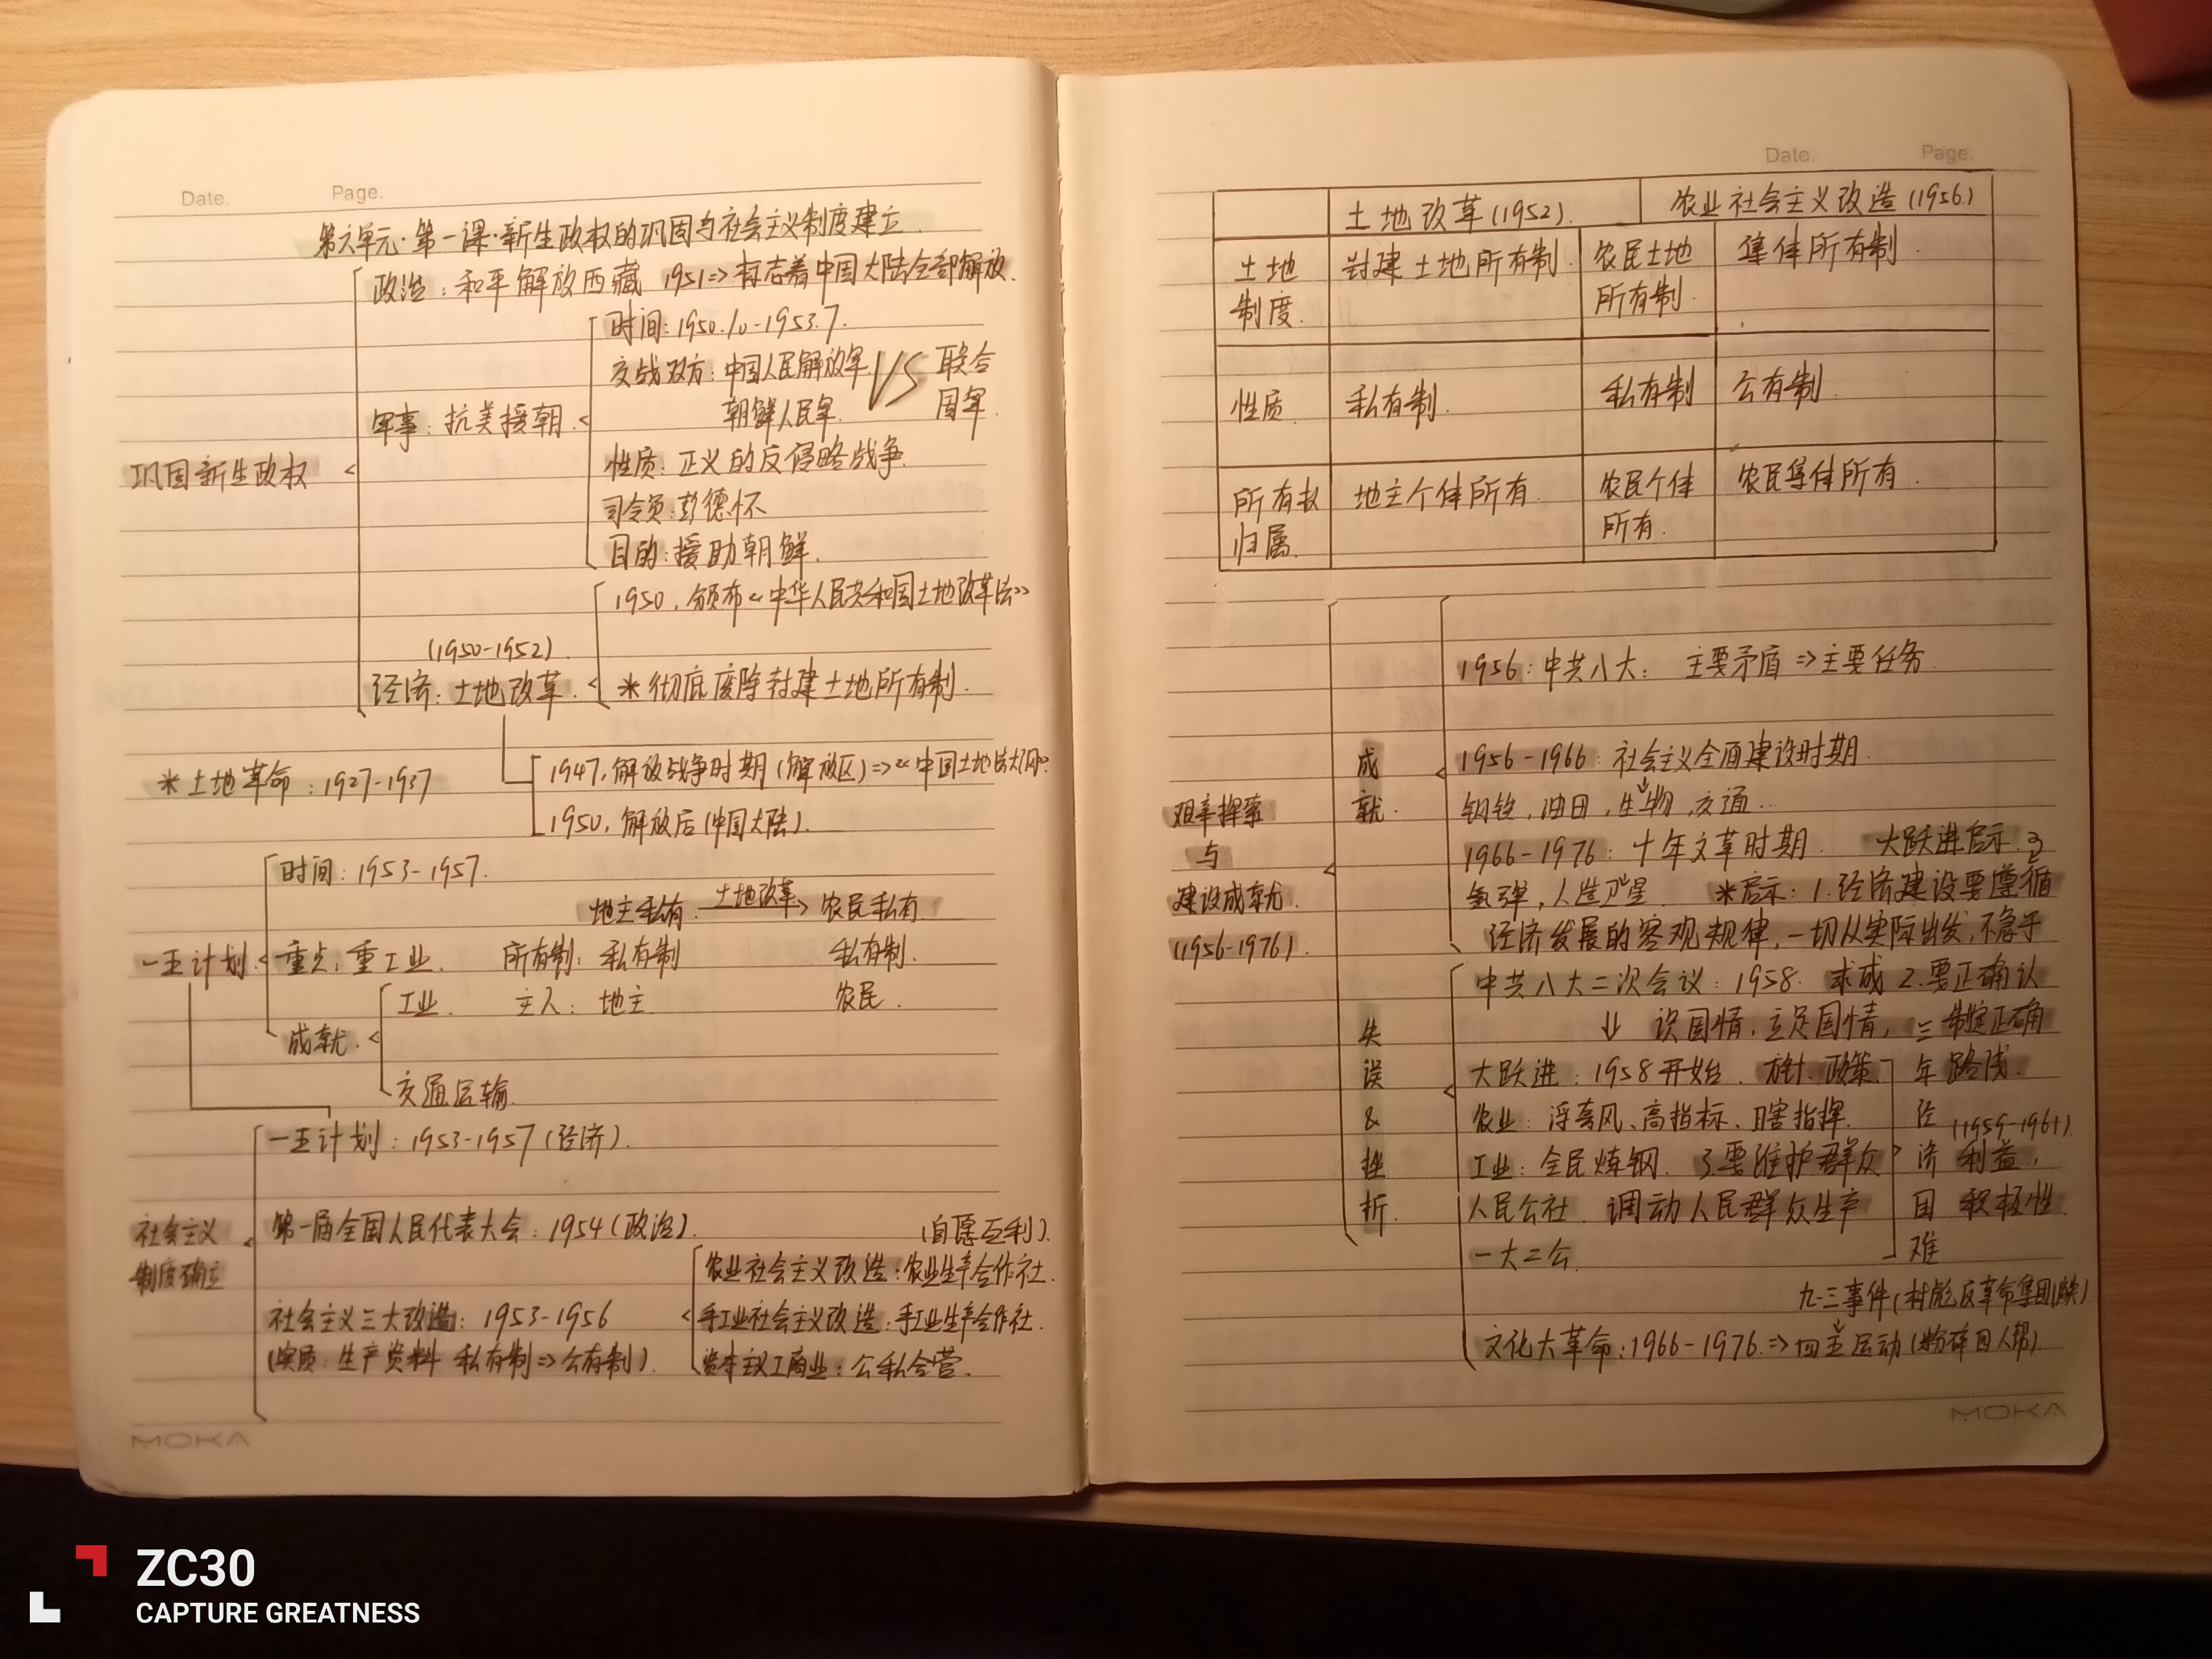 Date. Page.
第六单元·第一课·新生政权的巩固与社会主义制度建立.
政治：和平解放西藏 1951⇒标志着中国大陆全部解放.
时间：1950.10-1953.7.
交战双方：中国人民解放军 VS 联合
朝鲜人民军. 国军.
军事：抗美援朝.
性质：正义的反侵略战争.
巩固新生政权
司令员：彭德怀
目的：援助朝鲜.
1950，颁布《中华人民共和国土地改革法》
(1950-1952).
经济：土地改革. *彻底废除封建土地所有制.
*土地革命：1927-1937
1947，解放战争时期(解放区)⇒《中国土地法大纲》
1950，解放后(中国大陆).
时间：1953-1957.
地主私有 土地改革 农民私有
一五计划. 重点：重工业. 所有制：私有制 私有制.
工业. 主人：地主. 农民.
成就.
交通运输.
一五计划：1953-1957(经济).
社会主义
制度确立
第一届全国人民代表大会：1954(政治). (自愿互利).
农业社会主义改造：农业生产合作社.
社会主义三大改造：1953-1956 手工业社会主义改造：手工业生产合作社.
(实质：生产资料 私有制⇒公有制). 资本主义工商业：公私合营.
MOKA
Date. Page.
土地改革(1952). 农业社会主义改造(1956.)
土地 封建土地所有制. 农民土地 集体所有制.
制度. 所有制.
性质. 私有制. 私有制 公有制.
所有权 地主个体所有. 农民个体 农民集体所有.
归属. 所有.
1956：中共八大： 主要矛盾⇒主要任务.
成
就.
1956-1966：社会主义全面建设时期.
钢铁，油田，生物，交通...
艰辛探索
与
建设成就.
(1956-1976).
1966-1976：十年文革时期. 大跃进启示.
氢弹，人造卫星. *启示：1.经济建设要遵循
经济发展的客观规律，一切从实际出发，不急于
中共八大二次会议：1958. 求成 2.要正确认
失
误
&
挫
折.
识国情，立足国情， 三 制定正确
大跃进：1958开始. 方针、政策、 年 路线.
农业：浮夸风、高指标、瞎指挥. 经 (1959-1961)
工业：全民炼钢. 3.要维护群众 济 利益，
人民公社. 调动人民群众生产 困 积极性.
一大二公. 难
九·三事件(林彪反革命集团)
文化大革命：1966-1976.⇒四五运动(粉碎四人帮).
MOKA
ZC30
CAPTURE GREATNESS